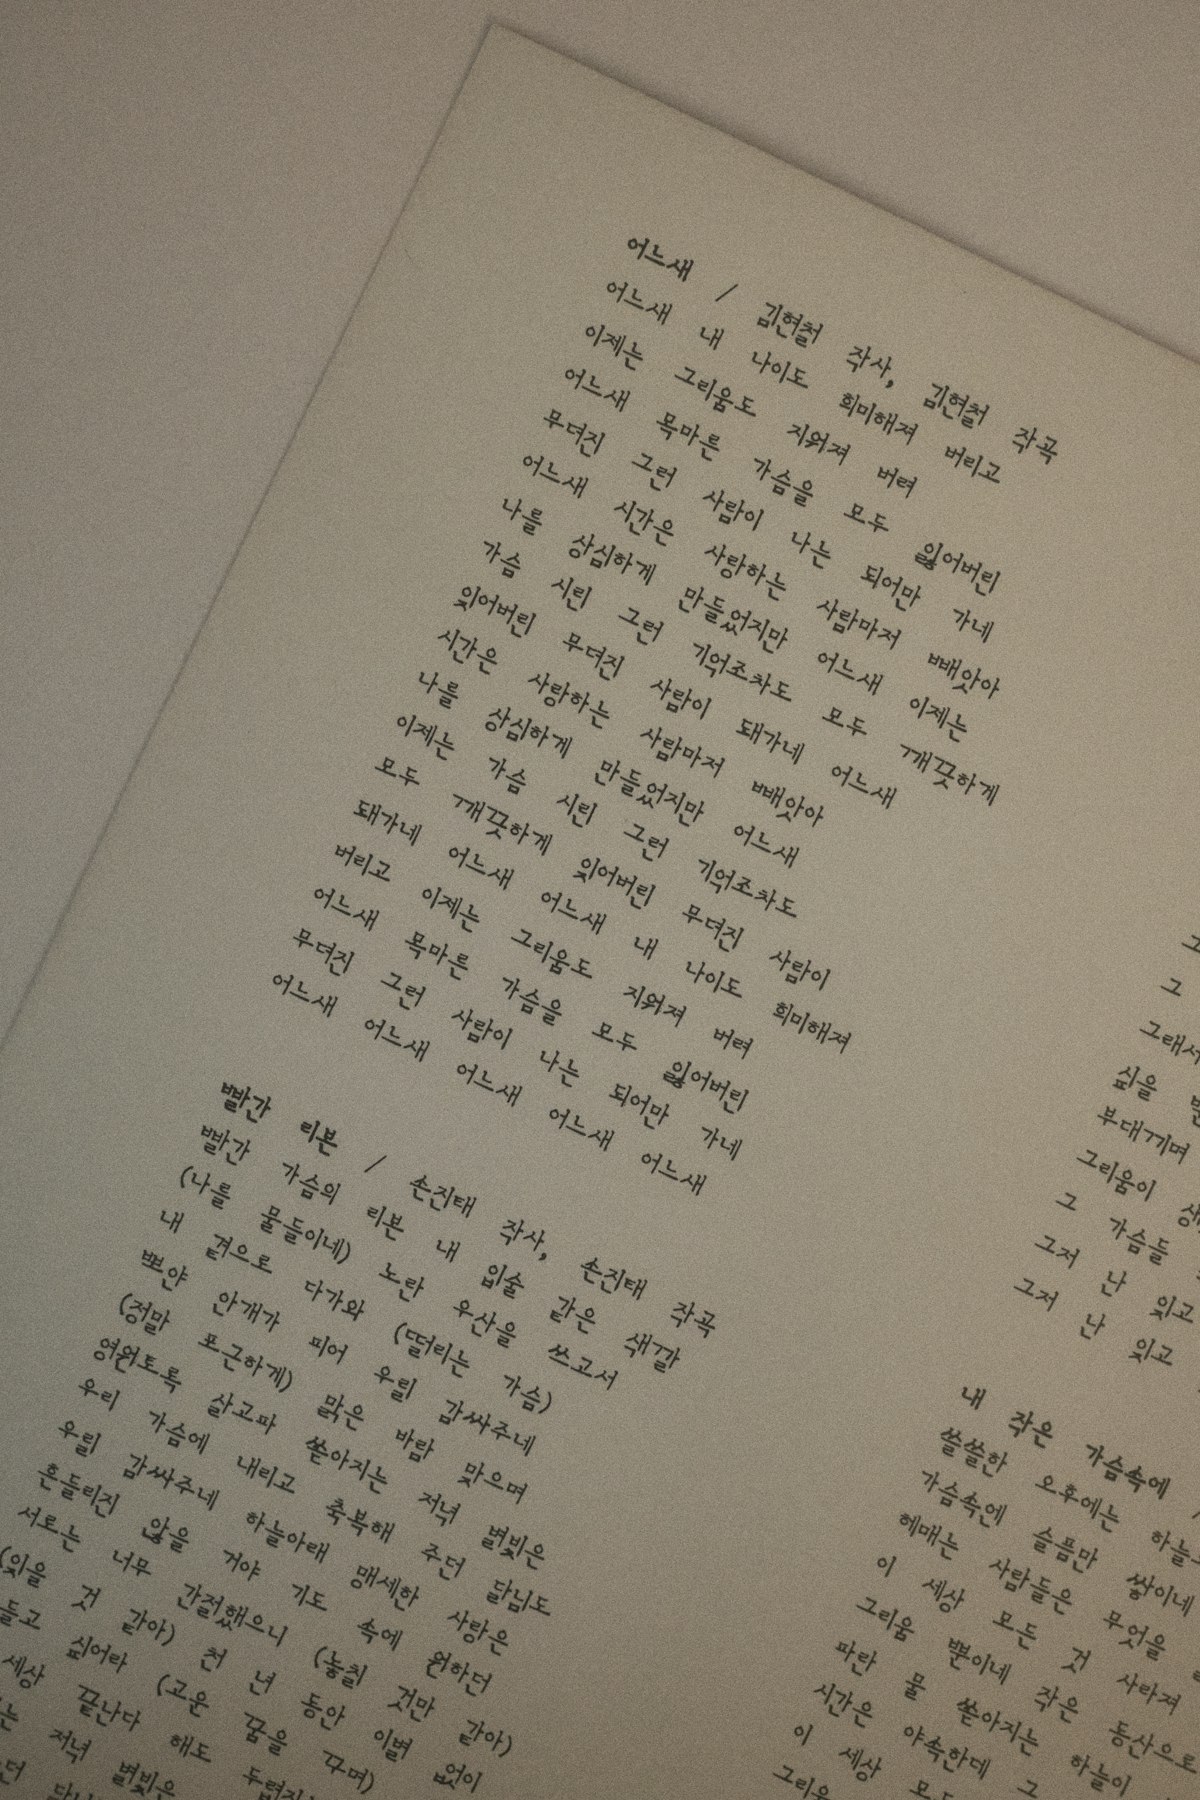 어느새 / 김현철 작사, 김현철 작곡
어느새 내 나이도 희미해져 버리고
이제는 그리움도 지워져 버려
어느새 목마른 가슴을 모두 잃어버린
무뎌진 그런 사람이 나는 되어만 가네
어느새 시간은 사랑하는 사람마저 빼앗아
나를 상심하게 만들었지만 어느새 이제는
가슴 시린 그런 기억조차도 모두 깨끗하게
잊어버린 무뎌진 사람이 돼가네 어느새
시간은 사랑하는 사람마저 빼앗아
나를 상심하게 만들었지만 어느새
이제는 가슴 시린 그런 기억조차도
모두 깨끗하게 잊어버린 무뎌진 사람이
돼가네 어느새 어느새 내 나이도 희미해져
버리고 이제는 그리움도 지워져 버려
어느새 목마른 가슴을 모두 잃어버린
무뎌진 그런 사람이 나는 되어만 가네
어느새 어느새 어느새 어느새 어느새
빨간 리본 / 손진태 작사, 손진태 작곡
빨간 가슴의 리본 내 입술 같은 색깔
(나를 물들이네) 노란 우산을 쓰고서
내 곁으로 다가와 (떨리는 가슴)
뽀얀 안개가 피어 우릴 감싸주네
(정말 포근하게) 맑은 바람 맞으며
영원토록 살고파 쏟아지는 저녁 별빛은
우리 가슴에 내리고 축복해 주던 달님도
우릴 감싸주네 하늘아래 맹세한 사랑은
흔들리지 않을 거야 기도 속에 원하던
서로는 너무 간절했으니 (놓칠 것만 같아)
(잊을 것 같아) 천 년 동안 이별 없이
들고 싶어라 (고운 꿈을 꾸며)
세상 끝난다 해도
는 저녁 별빛은
던
그
그
그래서
싶을
부대끼며
그리움이
그 가슴들
그저 난 잊고
그저 난 잊고
내 작은 가슴속에 /
쓸쓸한 오후에는 하늘
가슴속에 슬픔만 쌓이네
헤매는 사람들은 무엇을
이 세상 모든 것 사라져
그리움 뿐이네 작은 동산으로
파란 물 쏟아지는 하늘이
시간은 야속한데 그
이 세상